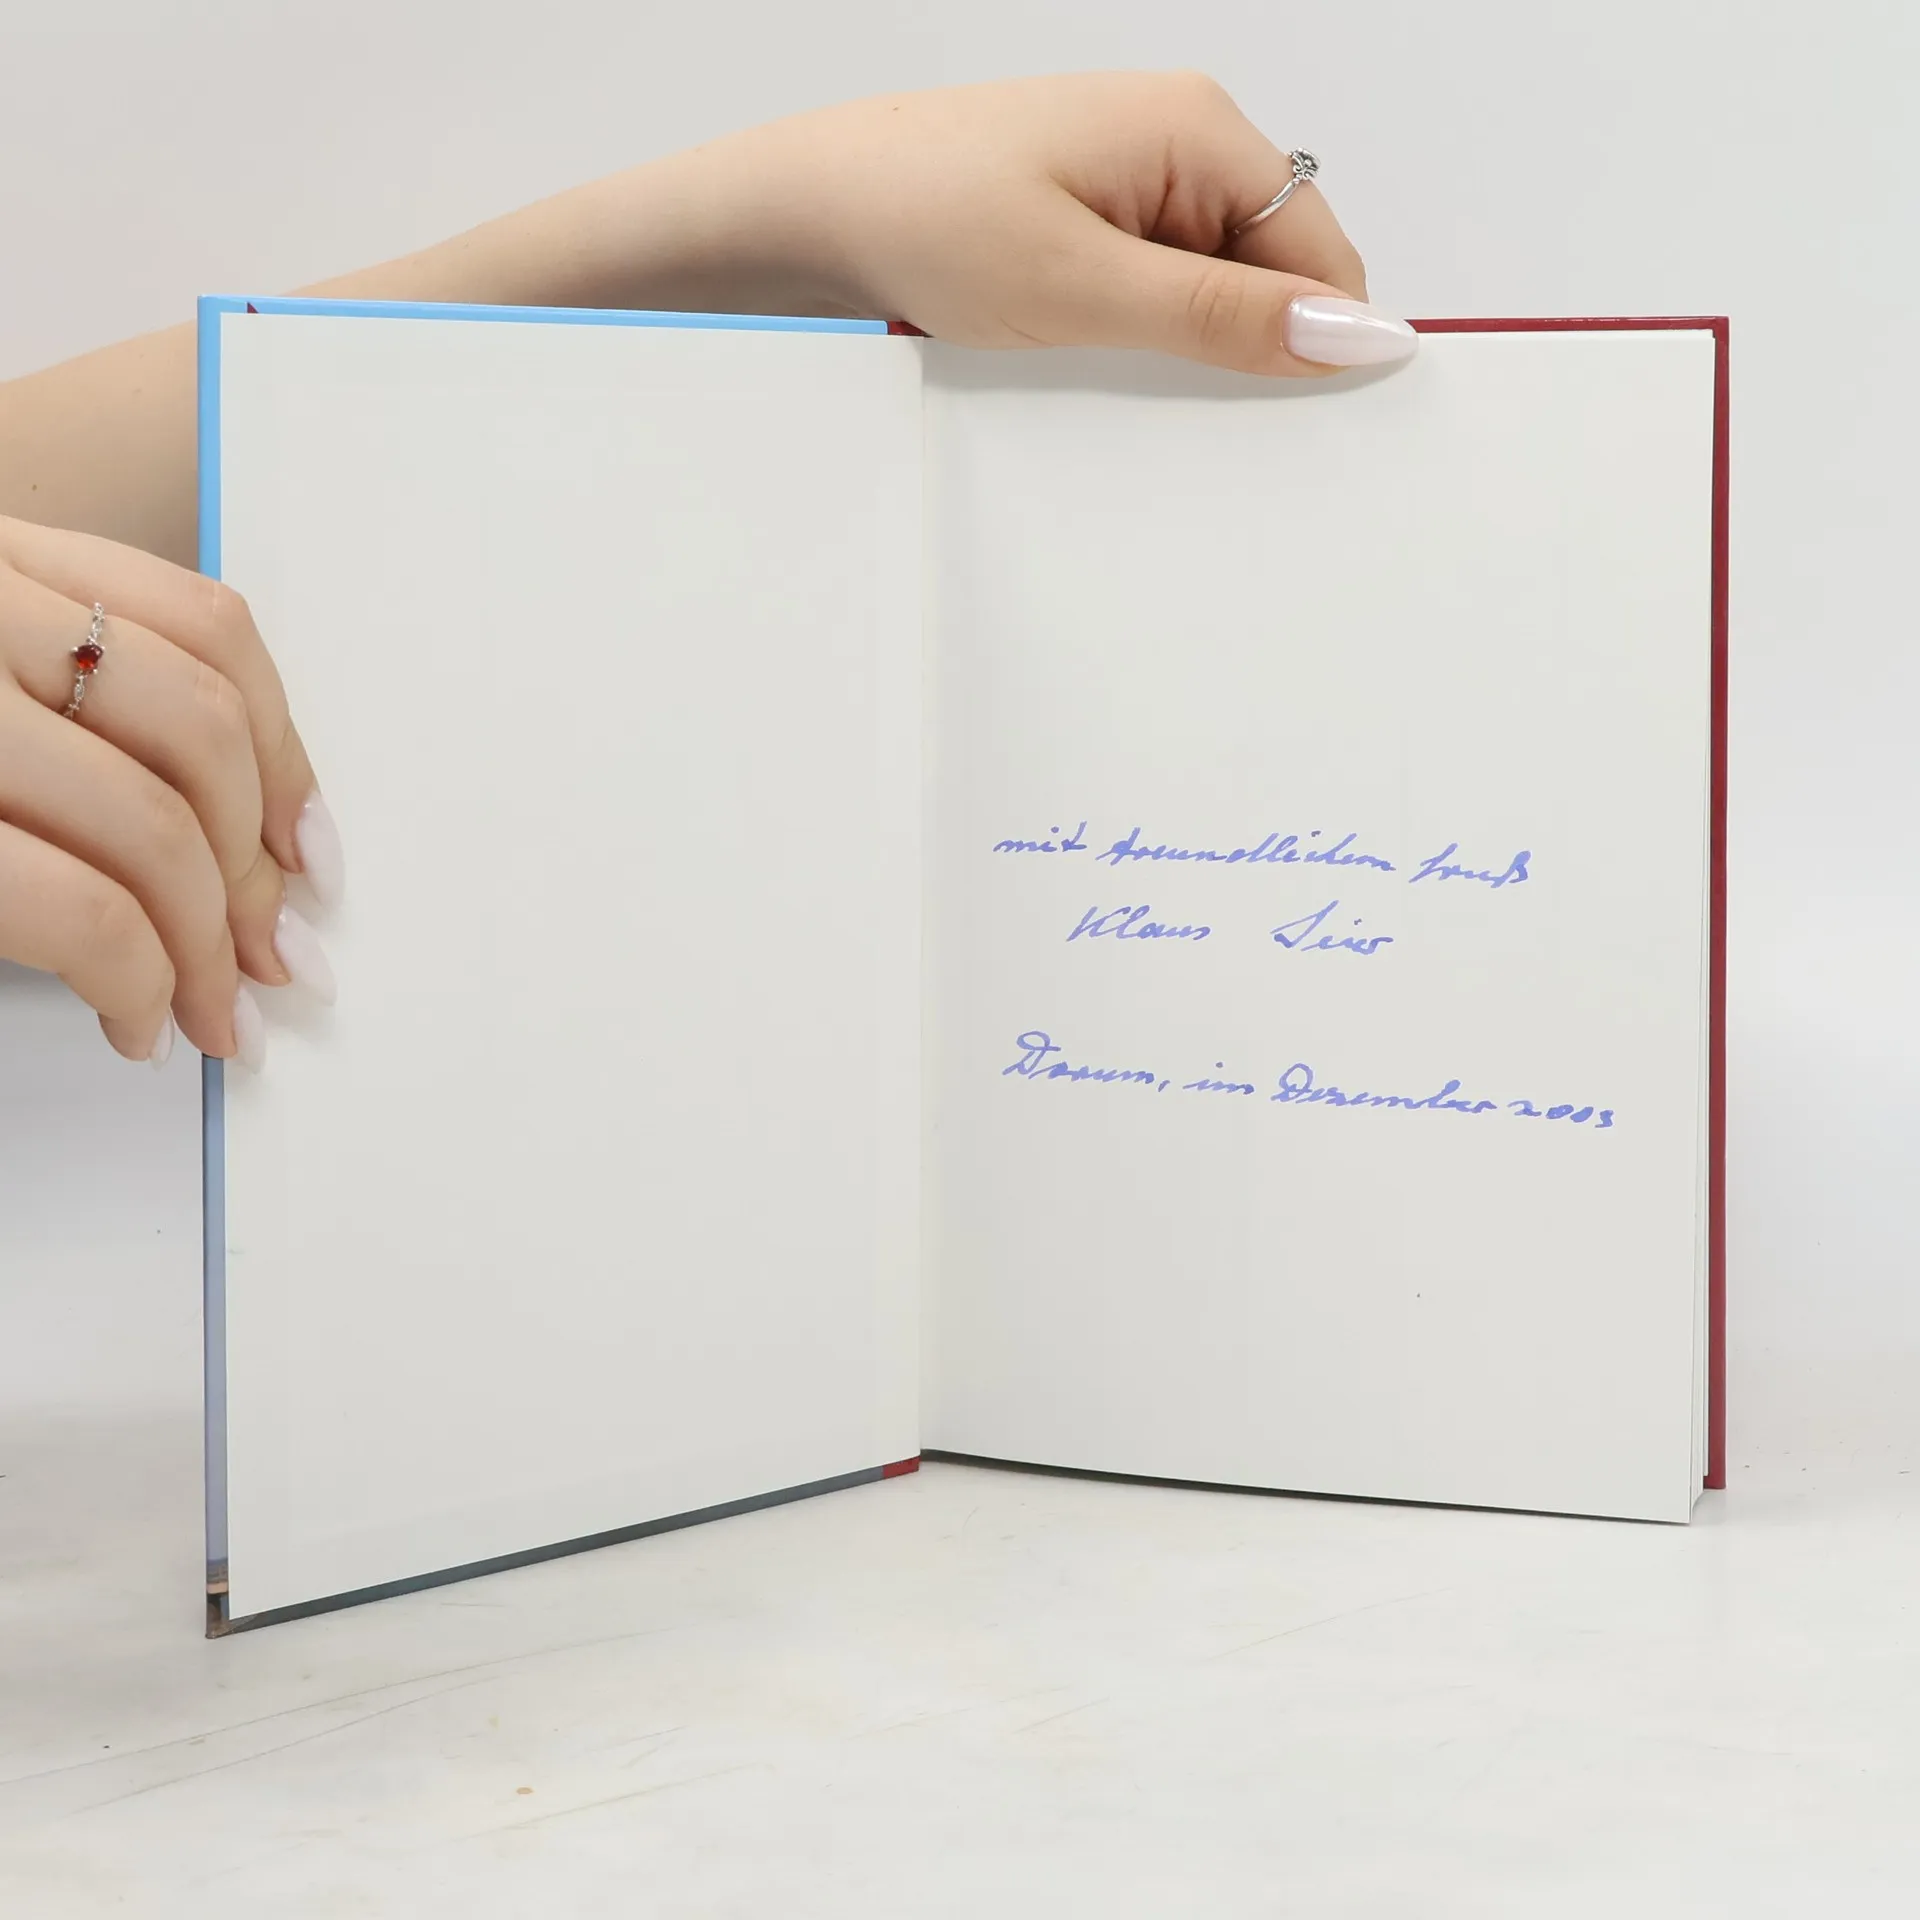 mit freundlichem Gruß
Klaus
Dorum, im Dezember 2003